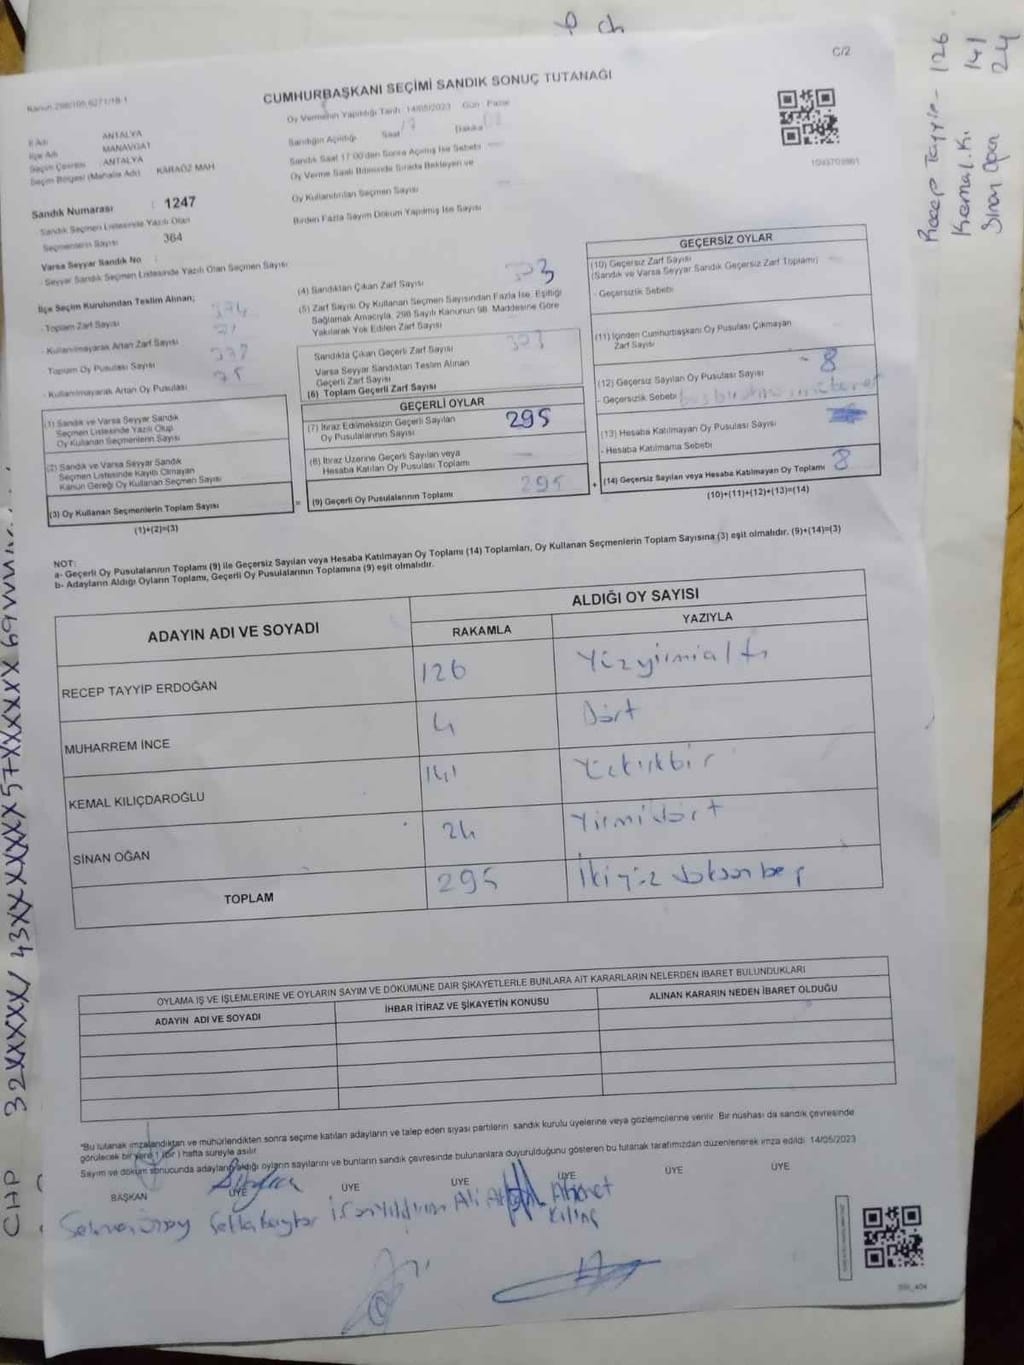 C/2
Kanun 298/105,6271/18-1
CUMHURBAŞKANI SEÇİMİ SANDIK SONUÇ TUTANAĞI
İl Adı ANTALYA
İlçe Adı MANAVGAT
Seçim Çevresi : ANTALYA
Seçim Bölgesi (Mahalle Adı) KARAÖZ MAH
Sandık Numarası : 1247
Sandık Seçmen Listesinde Yazılı Olan
Seçmenlerin Sayısı 364
Varsa Seyyar Sandık No :
Seyyar Sandık Seçmen Listesinde Yazılı Olan Seçmen Sayısı
Oy Vermenin Yapıldığı Tarih 14/05/2023 Gün : Pazar
Sandığın Açıldığı Saat 17 Dakika
Sandık Saat 17:00'den Sonra Açılmış İse Sebebi
Oy Verme Saati Bitiminde Sırada Bekleyen ve
Oy Kullandırılan Seçmen Sayısı
Birden Fazla Sayım Döküm Yapılmış İse Sayısı
İlçe Seçim Kurulundan Teslim Alınan;
-Toplam Zarf Sayısı 374
-Kullanılmayarak Artan Zarf Sayısı 71
-Toplam Oy Pusulası Sayısı
-Kullanılmayarak Artan Oy Pusulası 75
(1) Sandık ve Varsa Seyyar Sandık
Seçmen Listesinde Yazılı Olup
Oy Kullanan Seçmenlerin Sayısı
(2) Sandık ve Varsa Seyyar Sandık
Seçmen Listesinde Kayıtlı Olmayan
Kanun Gereği Oy Kullanan Seçmen Sayısı
(3) Oy Kullanan Seçmenlerin Toplam Sayısı
(1)+(2)=(3)
(4) Sandıktan Çıkan Zarf Sayısı
(5) Zarf Sayısı Oy Kullanan Seçmen Sayısından Fazla İse, Eşitliği
Sağlamak Amacıyla, 298 Sayılı Kanunun 98. Maddesine Göre
Yakılarak Yok Edilen Zarf Sayısı
Sandıkta Çıkan Geçerli Zarf Sayısı
Varsa Seyyar Sandıktan Teslim Alınan
Geçerli Zarf Sayısı
(6) Toplam Geçerli Zarf Sayısı
GEÇERLİ OYLAR
(7) İtiraz Edilmeksizin Geçerli Sayılan
Oy Pusulalarının Sayısı 295
(8) İtiraz Üzerine Geçerli Sayılan veya
Hesaba Katılan Oy Pusulası Toplamı
= (9) Geçerli Oy Pusulalarının Toplamı 295 +
GEÇERSİZ OYLAR
(10) Geçersiz Zarf Sayısı
(Sandık ve Varsa Seyyar Sandık Geçersiz Zarf Toplamı)
- Geçersizlik Sebebi
(11) İçinden Cumhurbaşkanı Oy Pusulası Çıkmayan
Zarf Sayısı
(12) Geçersiz Sayılan Oy Pusulası Sayısı 8
- Geçersizlik Sebebi
(13) Hesaba Katılmayan Oy Pusulası Sayısı
- Hesaba Katılmama Sebebi
(14) Geçersiz Sayılan veya Hesaba Katılmayan Oy Toplamı 8
(10)+(11)+(12)+(13)=(14)
NOT:
a- Geçerli Oy Pusulalarının Toplamı (9) ile Geçersiz Sayılan veya Hesaba Katılmayan Oy Toplamı (14) Toplamları, Oy Kullanan Seçmenlerin Toplam Sayısına (3) eşit olmalıdır. (9)+(14)=(3)
b- Adayların Aldığı Oyların Toplamı, Geçerli Oy Pusulalarının Toplamına (9) eşit olmalıdır.
ADAYIN ADI VE SOYADI ALDIĞI OY SAYISI
RAKAMLA YAZIYLA
RECEP TAYYİP ERDOĞAN 126 Yüzyirmialtı
MUHARREM İNCE 4 Dört
KEMAL KILIÇDAROĞLU 141 Yüzkırkbir
SİNAN OĞAN 24 Yirmidört
TOPLAM 295 İkiyüz doksan beş
OYLAMA İŞ VE İŞLEMLERİNE VE OYLARIN SAYIM VE DÖKÜMÜNE DAİR ŞİKAYETLERLE BUNLARA AİT KARARLARIN NELERDEN İBARET BULUNDUKLARI
ADAYIN ADI VE SOYADI İHBAR İTİRAZ VE ŞİKAYETİN KONUSU ALINAN KARARIN NEDEN İBARET OLDUĞU
"Bu tutanak imzalandıktan ve mühürlendikten sonra seçime katılan adayların ve talep eden siyasi partilerin sandık kurulu üyelerine veya gözlemcilerine verilir. Bir nüshası da sandık çevresinde
görülecek bir yere 1 (bir) hafta süreyle asılır.
Sayım ve döküm sonucunda adayların aldığı oyların sayılarını ve bunların sandık çevresinde bulunanlara duyurulduğunu gösteren bu tutanak tarafımızdan düzenlenerek imza edildi. 14/05/2023
BAŞKAN ÜYE ÜYE ÜYE ÜYE ÜYE ÜYE
Ahmet
Kılınç
Recep Tayyip- 126
Kemal.K. 141
Sinan Ogan 24
CHP